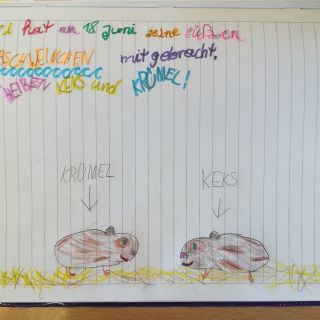 hat am 18 Juni seine süßen
RSCHWEINCHEN mit gebracht.
HEIßEN KEKS und KRÜMEL!
KRÜMEL KEKS